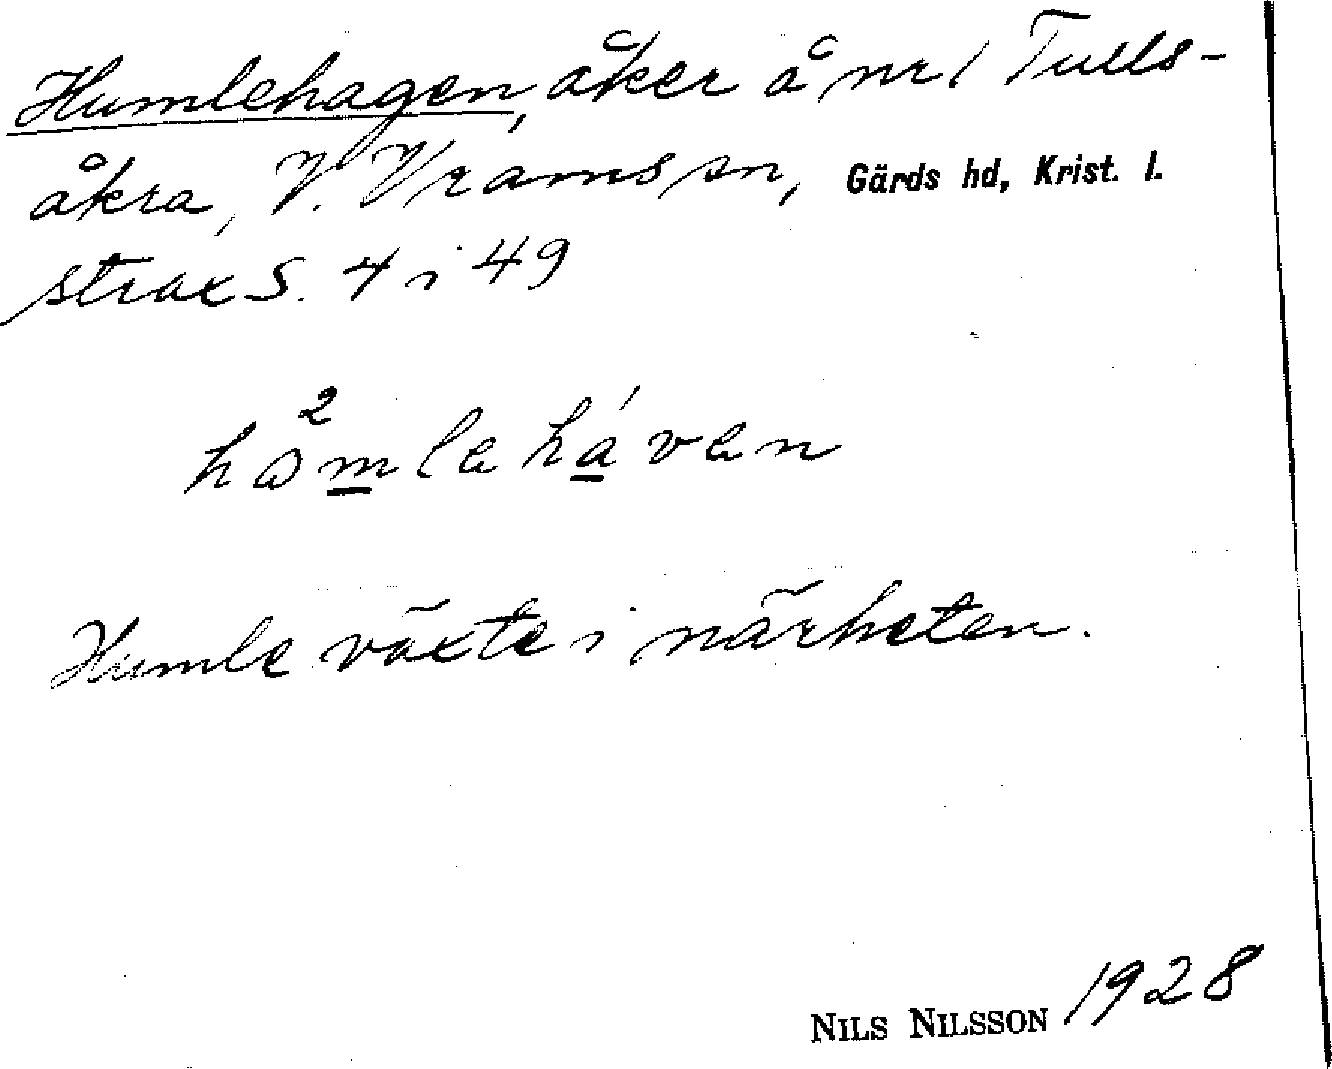 Humlehagen, åker å nr 1 Tulls-
åkra, V. Vrams sn, Gärds hd, Krist. l.
strax S. 4 i 49
2
hɷm̲lehá̲ven
Humle växte i närheten.
NILS NILSSON 1928